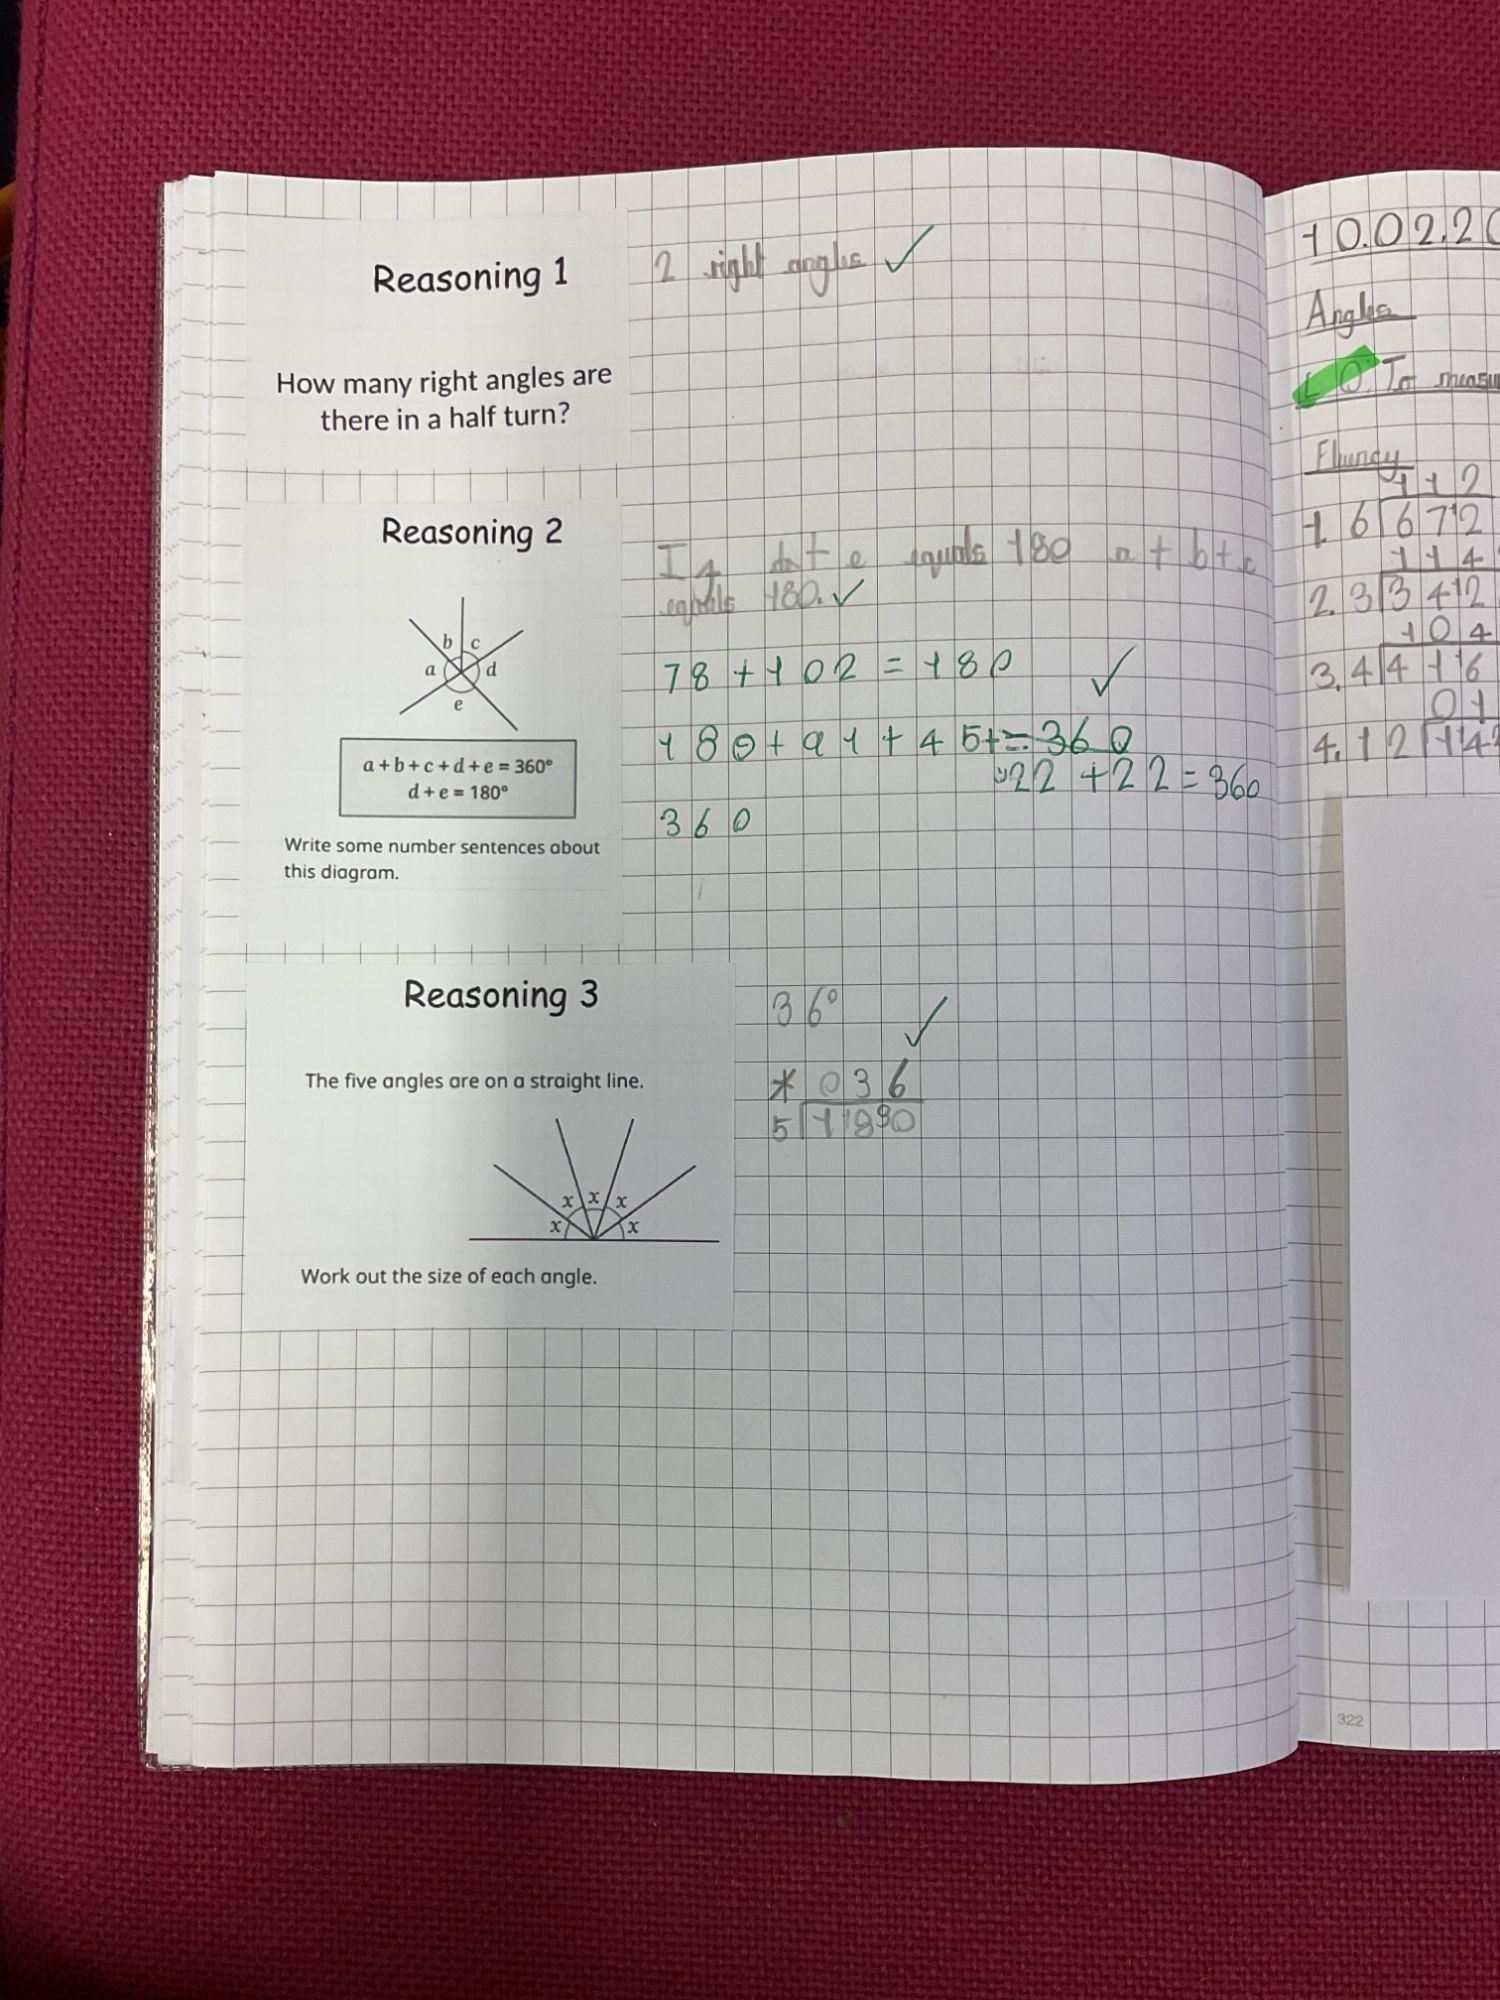 Reasoning 1
How many right angles are
there in a half turn?
2 right angles ✓
Reasoning 2
b c
a d
e
a + b + c + d + e = 360°
d + e = 180°
Write some number sentences about
this diagram.
If d + e equals 180 a + b + c
equals 180. ✓
78 + 102 = 180 ✓
180 + 91 + 45 + = 360
22 + 22 = 360
360
Reasoning 3
The five angles are on a straight line.
x x x
x x
Work out the size of each angle.
36° ✓
* 036
5 1 18 30
10.02.20
Angles
L O: To measu
Fluncy
112
1. 6 6712
114
2. 3 3412
104
3. 4 4116
01
4. 12 14
322